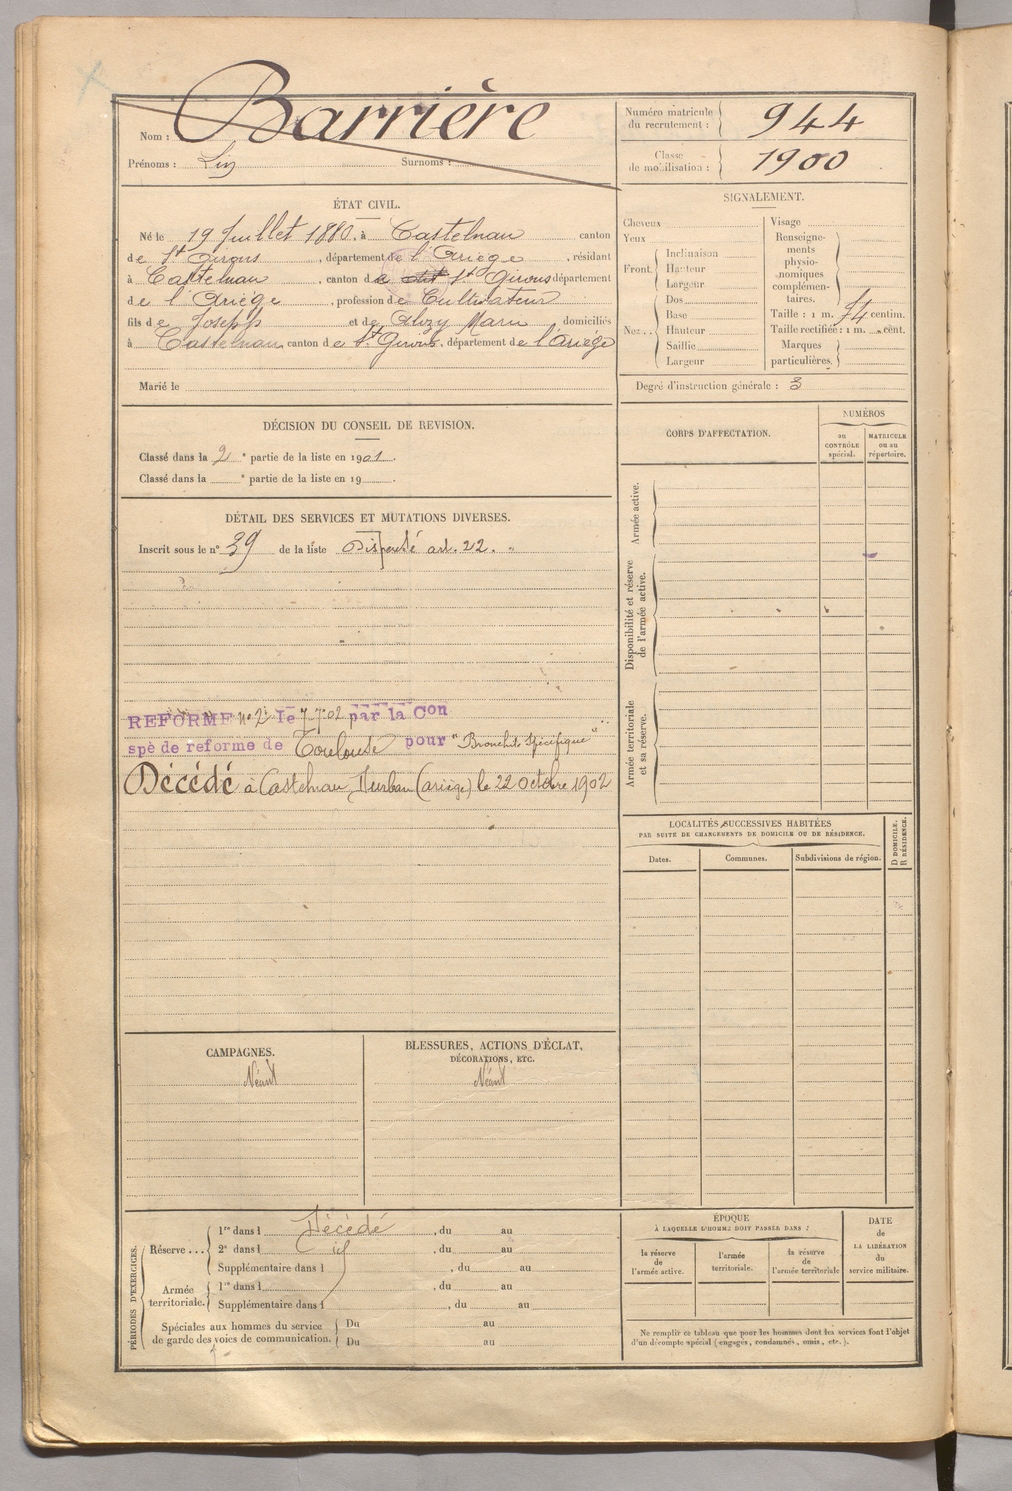 Nom : Barrière
Prénoms : Surnoms :
Numéro matricule du recrutement : 944
Classe de mobilisation : 1900
ÉTAT CIVIL.
Né le 19 Juillet 1880, à Castelnau canton
de St Girons, département de l'Ariège, résidant
à Castelnau, canton de St Girons département
de l'Ariège, profession de Cultivateur
fils de Joseph et de Marie domiciliés
à Castelnau canton de St Girons, département de l'Ariège
Marié le
SIGNALEMENT.
Cheveux
Yeux
Front.
Inclinaison
Hauteur
Largeur
Nez...
Dos
Base
Hauteur
Saillie
Largeur
Visage
Renseigne-
ments
physio-
nomiques
complémen-
taires.
Taille : 1 m. 74 centim.
Taille rectifiée : 1 m. cent.
Marques
particulières.
Degré d'instruction générale : 3
DÉCISION DU CONSEIL DE REVISION.
Classé dans la 2 e partie de la liste en 1901.
Classé dans la e partie de la liste en 19 .
DÉTAIL DES SERVICES ET MUTATIONS DIVERSES.
Inscrit sous le n° 39 de la liste Dispensé art. 22.
REFORME n° 2 le 7-7-02 par la Con
spè de reforme de Toulouse pour "Bronchite Spécifique"
Décédé à Castelnau Durban (ariège) le 22 Octobre 1902
CORPS D'AFFECTATION.
NUMÉROS
au
CONTRÔLE
spécial.
MATRICULE
ou au
répertoire.
Armée active.
Disponibilité et réserve
de l'armée active.
Armée territoriale
et sa réserve.
LOCALITÉS SUCCESSIVES HABITÉES
PAR SUITE DE CHANGEMENTS DE DOMICILE OU DE RÉSIDENCE.
Dates.
Communes.
Subdivisions de région.
D DOMICILE.
R RÉSIDENCE.
CAMPAGNES.
Néant
BLESSURES, ACTIONS D'ÉCLAT,
DÉCORATIONS, ETC.
Néant
PÉRIODES D'EXERCICES.
Réserve ...
1re dans l Décédé, du au
2e dans l , du au
Supplémentaire dans l , du au
Armée
territoriale.
1re dans l , du au
Supplémentaire dans l , du au
Spéciales aux hommes du service
de garde des voies de communication.
Du au
Du au
ÉPOQUE
À LAQUELLE L'HOMME DOIT PASSER DANS :
la réserve
de
l'armée active.
l'armée
territoriale.
la réserve
de
l'armée territoriale
DATE
de
LA LIBÉRATION
du
service militaire.
Ne remplir ce tableau que pour les hommes dont les services font l'objet
d'un décompte spécial (engagés, condamnés, omis, etc.).